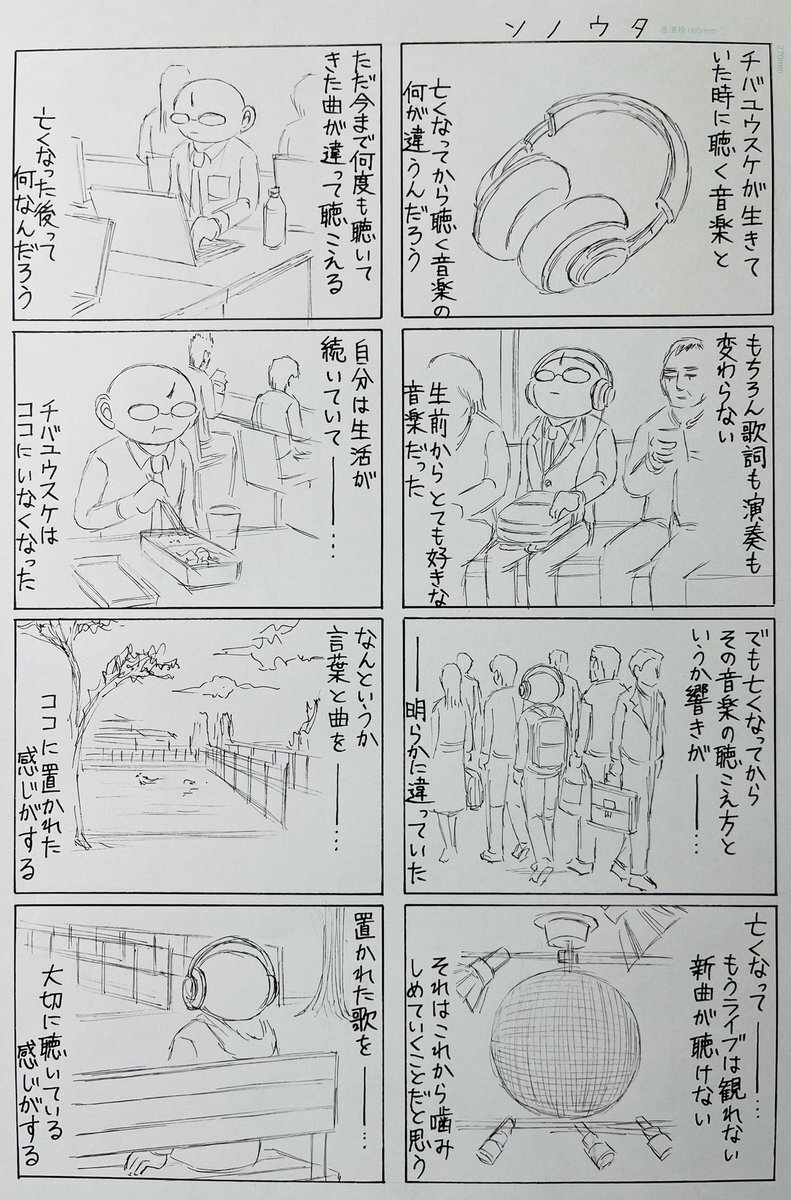 ソノウタ
基準枠180mm
270mm
チバユウスケが生きて
いた時に聴く音楽と
亡くなってから聴く音楽の
何が違うんだろう
もちろん歌詞も演奏も
変わらない
生前からとても好きな
音楽だった
でも亡くなってから
その音楽の聴こえ方と
いうか響きが――…
――明らかに違っていた
亡くなって――…
もうライブは観れない
新曲が聴けない
それはこれから噛み
しめていくことだと思う
ただ今まで何度も聴いて
きた曲が違って聴こえる
亡くなった後って
何なんだろう
自分は生活が
続いていて――…
チバユウスケは
ココにいなくなった
なんというか
言葉と曲を――…
ココに置かれた
感じがする
置かれた歌を――…
大切に聴いている
感じがする